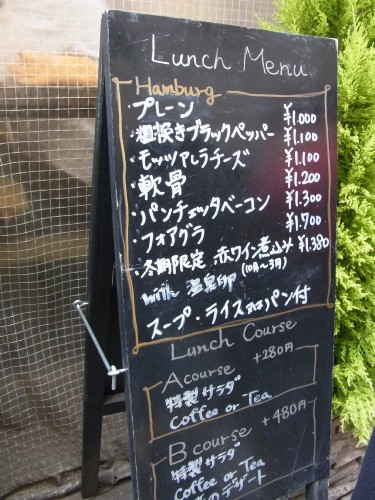 Lunch Menu
Hamburg
プレーン ¥1.000
・粗挽きブラックペッパー ¥1.100
・モッツァレラチーズ ¥1.100
・軟骨 ¥1.200
・パンチェッタベーコン ¥1.300
・フォアグラ ¥1.700
・冬期限定 赤ワイン煮込み ¥1.380
(10月〜3月)
with 温泉卵
スープ・ライス or パン付
Lunch Course
A course +280円
特製サラダ
Coffee or Tea
B course +480円
特製サラダ
Coffee or Tea
のデザート